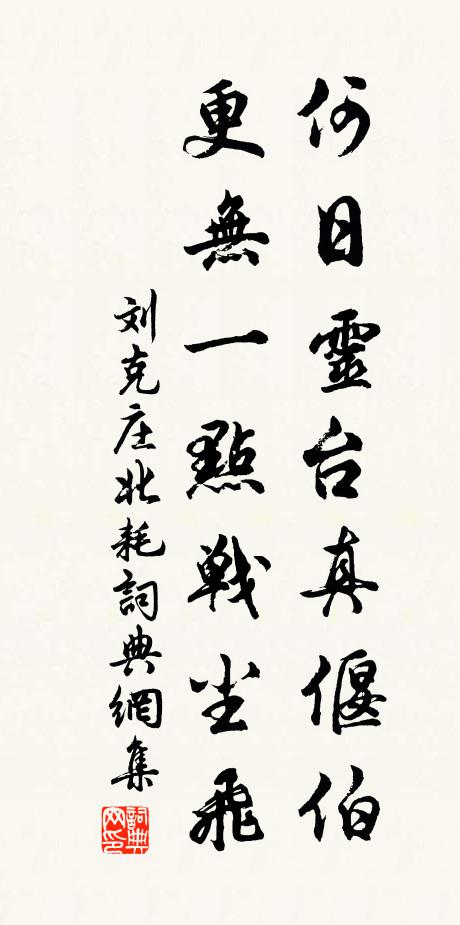 何日靈台真偃伯
更無一點戰尘飛
刘克庄北耗詞典網集
詞典網印